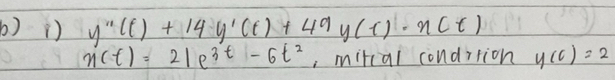 b) i) y"(t) + 14 y'(t) + 49 y(t) = x(t)
x(t) = 21e^3t - 6t², initial condition y(0) = 2